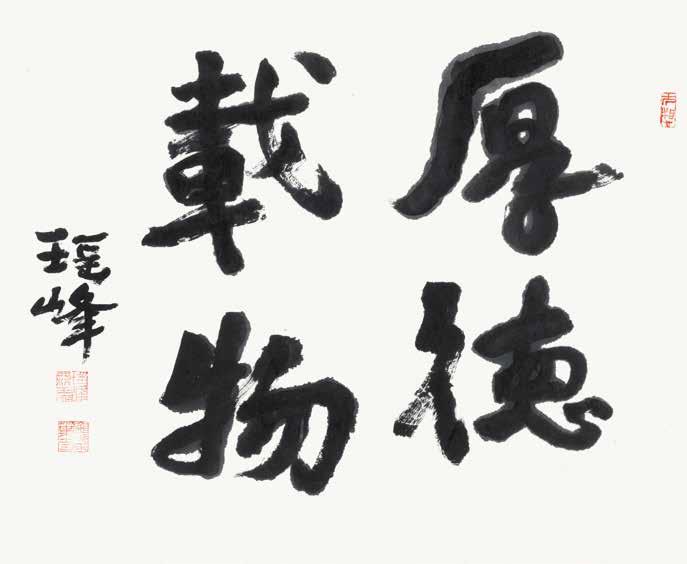 厚徳
載物
瑶峰